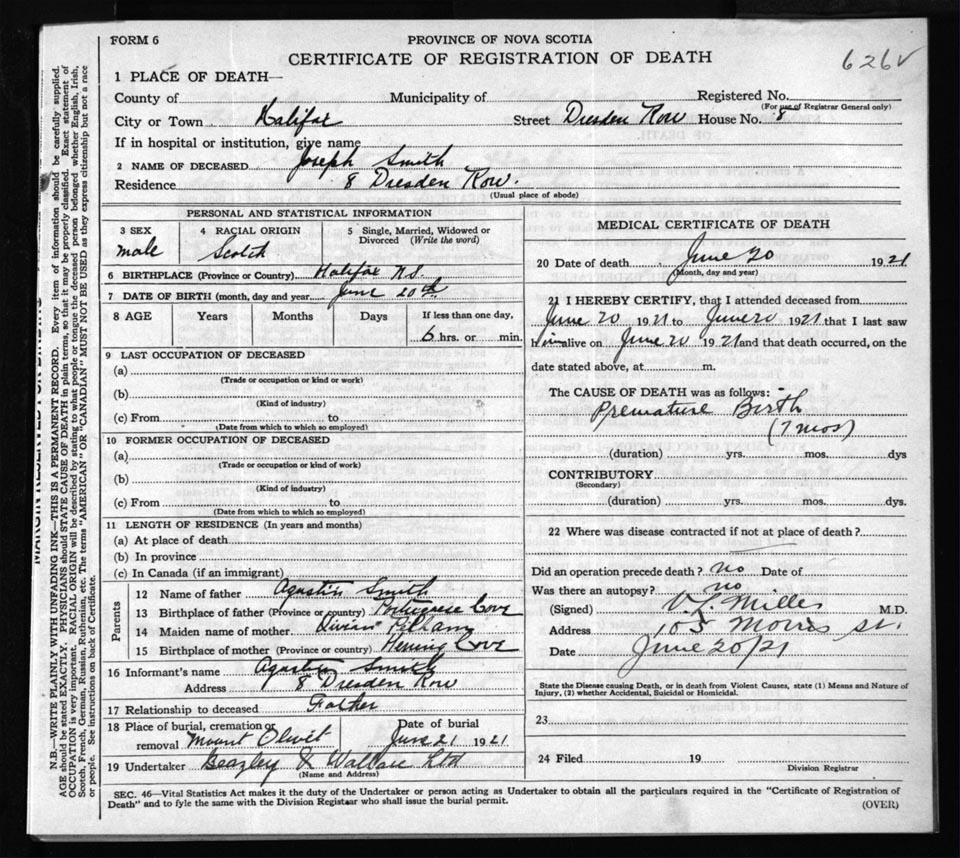 FORM 6
PROVINCE OF NOVA SCOTIA
CERTIFICATE OF REGISTRATION OF DEATH
626
1 PLACE OF DEATH—
County of Municipality of Registered No.
(For use of Registrar General only)
City or Town Halifax Street Dresden Row House No. 8
If in hospital or institution, give name
2 NAME OF DECEASED Joseph Smith
Residence 8 Dresden Row.
(Usual place of abode)
PERSONAL AND STATISTICAL INFORMATION
3 SEX 4 RACIAL ORIGIN 5 Single, Married, Widowed or
Divorced (Write the word)
male Scotch
6 BIRTHPLACE (Province or Country) Halifax N.S.
7 DATE OF BIRTH (month, day and year) June 20th
8 AGE Years Months Days If less than one day,
6 hrs. or min.
9 LAST OCCUPATION OF DECEASED
(a)
(Trade or occupation or kind or work)
(b)
(Kind of industry)
(c) From to
(Date from which to which so employed)
10 FORMER OCCUPATION OF DECEASED
(a)
(Trade or occupation or kind of work)
(b)
(Kind of industry)
(c) From to
(Date from which to which so employed)
11 LENGTH OF RESIDENCE (In years and months)
(a) At place of death
(b) In province
(c) In Canada (if an immigrant)
Parents
12 Name of father Agustin Smith
13 Birthplace of father (Province or country) Portuguese Cove
14 Maiden name of mother
15 Birthplace of mother (Province or country) Herring Cove
16 Informant's name Agustin Smith
Address 8 Dresden Row
17 Relationship to deceased Father
18 Place of burial, cremation or
removal Mount Olivet
Date of burial
June 21 1921
19 Undertaker Beazley & Wallace Ltd
(Name and Address)
MEDICAL CERTIFICATE OF DEATH
20 Date of death June 20 1921
(Month, day and year)
21 I HEREBY CERTIFY, that I attended deceased from
June 20 1921 to June 20 1921 that I last saw
him alive on June 20 1921 and that death occurred, on the
date stated above, at m.
The CAUSE OF DEATH was as follows:
Premature Birth
(7 mos)
(duration) yrs. mos. dys
CONTRIBUTORY
(Secondary)
(duration) yrs. mos. dys.
22 Where was disease contracted if not at place of death?
Did an operation precede death? no Date of
Was there an autopsy? no
(Signed) V. L. Miller M.D.
Address 105 Morris St.
Date June 20/21
State the Disease causing Death, or in death from Violent Causes, state (1) Means and Nature of
Injury, (2) whether Accidental, Suicidal or Homicidal.
23
24 Filed 19
Division Registrar
SEC. 46—Vital Statistics Act makes it the duty of the Undertaker or person acting as Undertaker to obtain all the particulars required in the "Certificate of Registration of
Death" and to fyle the same with the Division Registrar who shall issue the burial permit.
(OVER)
N.B.—WRITE PLAINLY WITH UNFADING INK—THIS IS A PERMANENT RECORD. Every item of information should be carefully supplied.
AGE should be stated EXACTLY. PHYSICIANS should STATE CAUSE OF DEATH in plain terms, so that it may be properly classified. Exact statement of
OCCUPATION is very important. RACIAL ORIGIN will be described by stating to what people or tongue the deceased person belonged whether English, Irish,
Scotch, French, German, Russian, Ruthenian, etc. The terms "AMERICAN" OR "CANADIAN" MUST NOT BE USED as they express citizenship but not a race
or people. See instructions on back of Certificate.